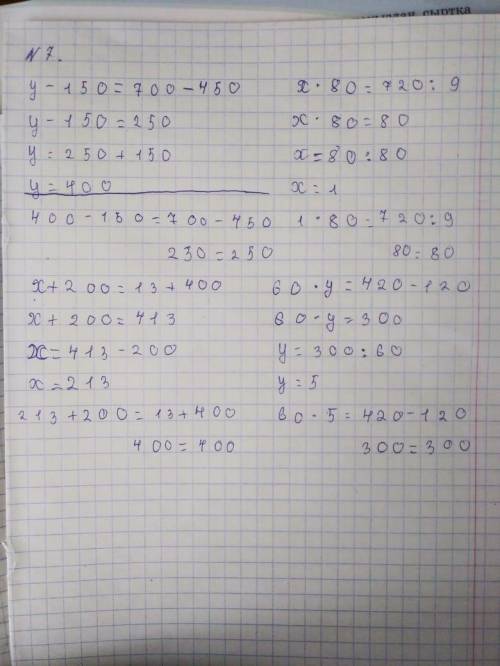 сыртқа
N 7.
y - 150 = 700 - 450
y - 150 = 250
y = 250 + 150
y = 400
400 - 150 = 700 - 450
250 = 250
x · 80 = 720 : 9
x · 80 = 80
x = 80 : 80
x = 1
1 · 80 = 720 : 9
80 = 80
x + 200 = 13 + 400
x + 200 = 413
x = 413 - 200
x = 213
213 + 200 = 13 + 400
400 = 400
60 · y = 420 - 120
60 · y = 300
y = 300 : 60
y = 5
60 · 5 = 420 - 120
300 = 300